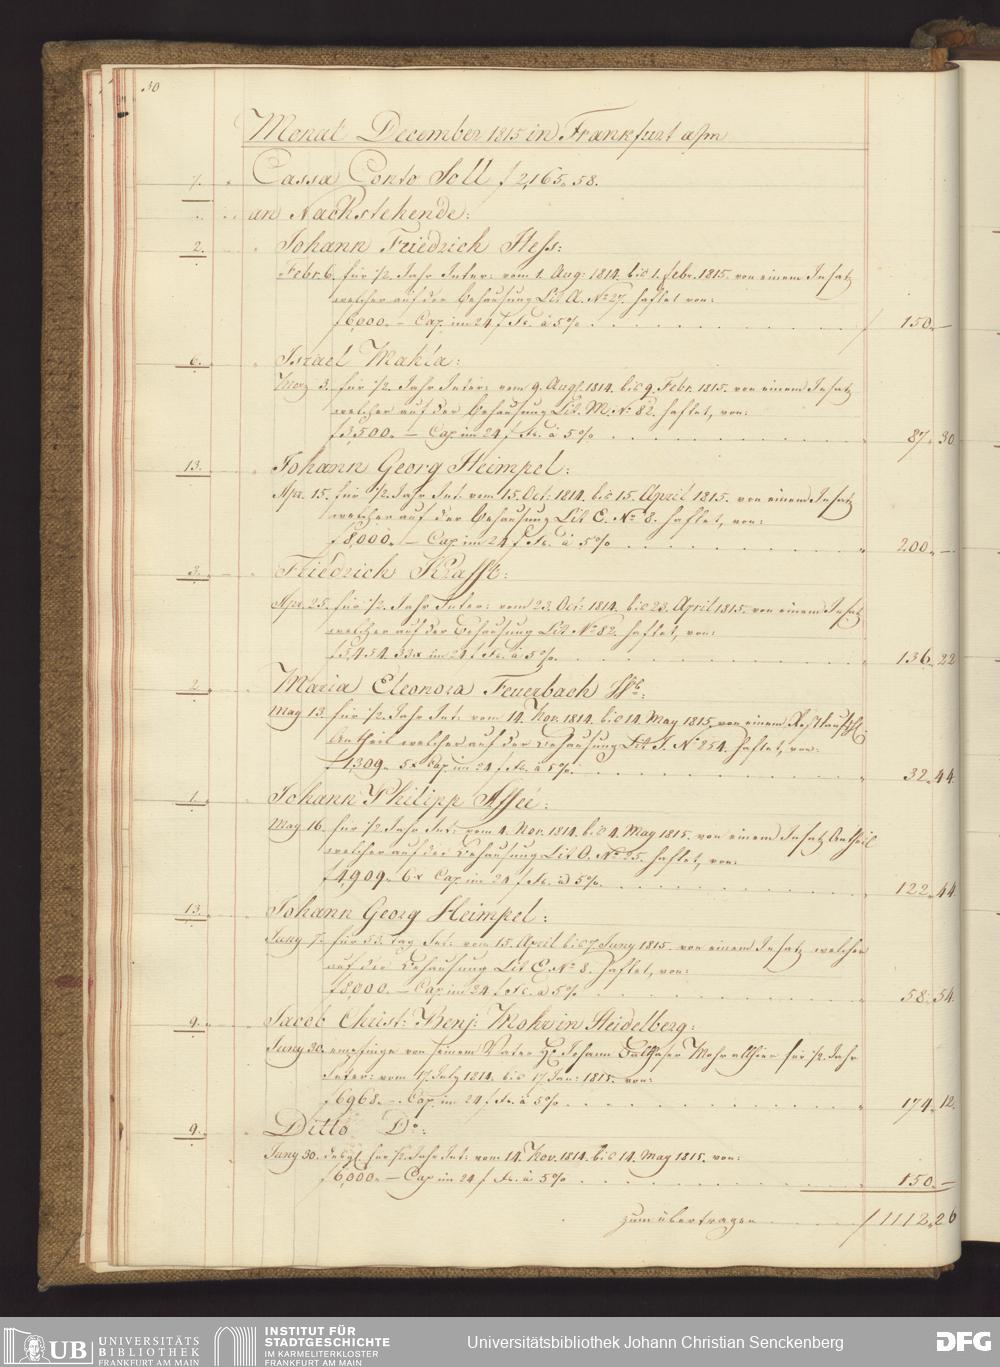 30
Monat December 1815 in Frankfurt a/m
7. Cassa Conto Soll f 2,165. 58.
an Nachstehende:
2. Johann Friedrich Hess:
Febr. 6. für 1/2 Jahr Inter: vom 1. Aug: 1814. bis 1. febr. 1815. von einem Insatz
welcher auf der Behausung Lit A. No 27. haftet von:
f 6,000. – Cap. im 24 f fs. à 5% f 150. –
6. Israel Mahla:
Merz 3. für 1/2 Jahr Inter: vom 9. Augt. 1814. bis 9. Febr. 1815. von einem Insatz
welcher auf der Behausung Lit. M. No 82. haftet, von:
f 3,500. – Cap im 24 f fs. à 5% " 87. 30
13. Johann Georg Heimpel:
Apr. 15. für 1/2 Jahr Int. vom 15. Oct: 1814. bis 15. April 1815. von einem Insatz
welcher auf der Behausung Lit E. No 8. haftet, von:
f 8,000. – Cap im 24 f fs. à 5% " 200. –
3. Friedrich Krafft:
Apr. 25. für 1/2 Jahr Inter: vom 23. Oct: 1814. bis 23. April 1815. von einem Insatz
welcher auf der Behausung Lit No 82. haftet, von:
f 5,454. 33x im 24 f fs. à 5%. " 136. 22
2. Maria Eleonora Feuerbach
May 13. für 1/2 Jahr Int: vom 14. Nov. 1814. bis 14. May 1815. von einem
Antheil welcher auf der Behausung Lit J. No 254. haftet, von:
f 1,309. 5x Cap. im 24 f fs. à 5%. " 32. 44
1. Johann Philipp
May 16. für 1/2 Jahr Int: vom 4. Nov. 1814. bis 4. May 1815. von einem Insatz Antheil
welcher auf der Behausung Lit O. No 25. haftet, von:
f 4,909. 6x Cap. im 24 f fs. à 5%. " 122. 44
13. Johann Georg Heimpel:
Juny 7. für 53. Tag Int: vom 15. April bis 7. Juny 1815. von einem Insatz welcher
auf der Behausung Lit E. No 8. haftet, von:
f 8,000. – Cap im 24 f fs. à 5% " 58. 54.
9. Jacob Christ: Benj: Mohr in Heidelberg:
Juny 30. empfinge von seinem Vater H. Johann Balthasar Mohr allhier für 1/2 Jahr
Inter: vom 17. July 1814. bis 17. Jan: 1815. von:
f 6968. – Cap. im 24 f fs. à 5% " 174. 12.
9. Ditto Do:
Juny 30. für 1/2 Jahr Int: vom 14. Nov. 1814. bis 14. May 1815. von:
f 6,000. – Cap im 24 f fs. à 5% " 150. –
zum übertragen f 1112. 26
UB UNIVERSITÄTS BIBLIOTHEK FRANKFURT AM MAIN
INSTITUT FÜR STADTGESCHICHTE IM KARMELITERKLOSTER FRANKFURT AM MAIN
Universitätsbibliothek Johann Christian Senckenberg
DFG